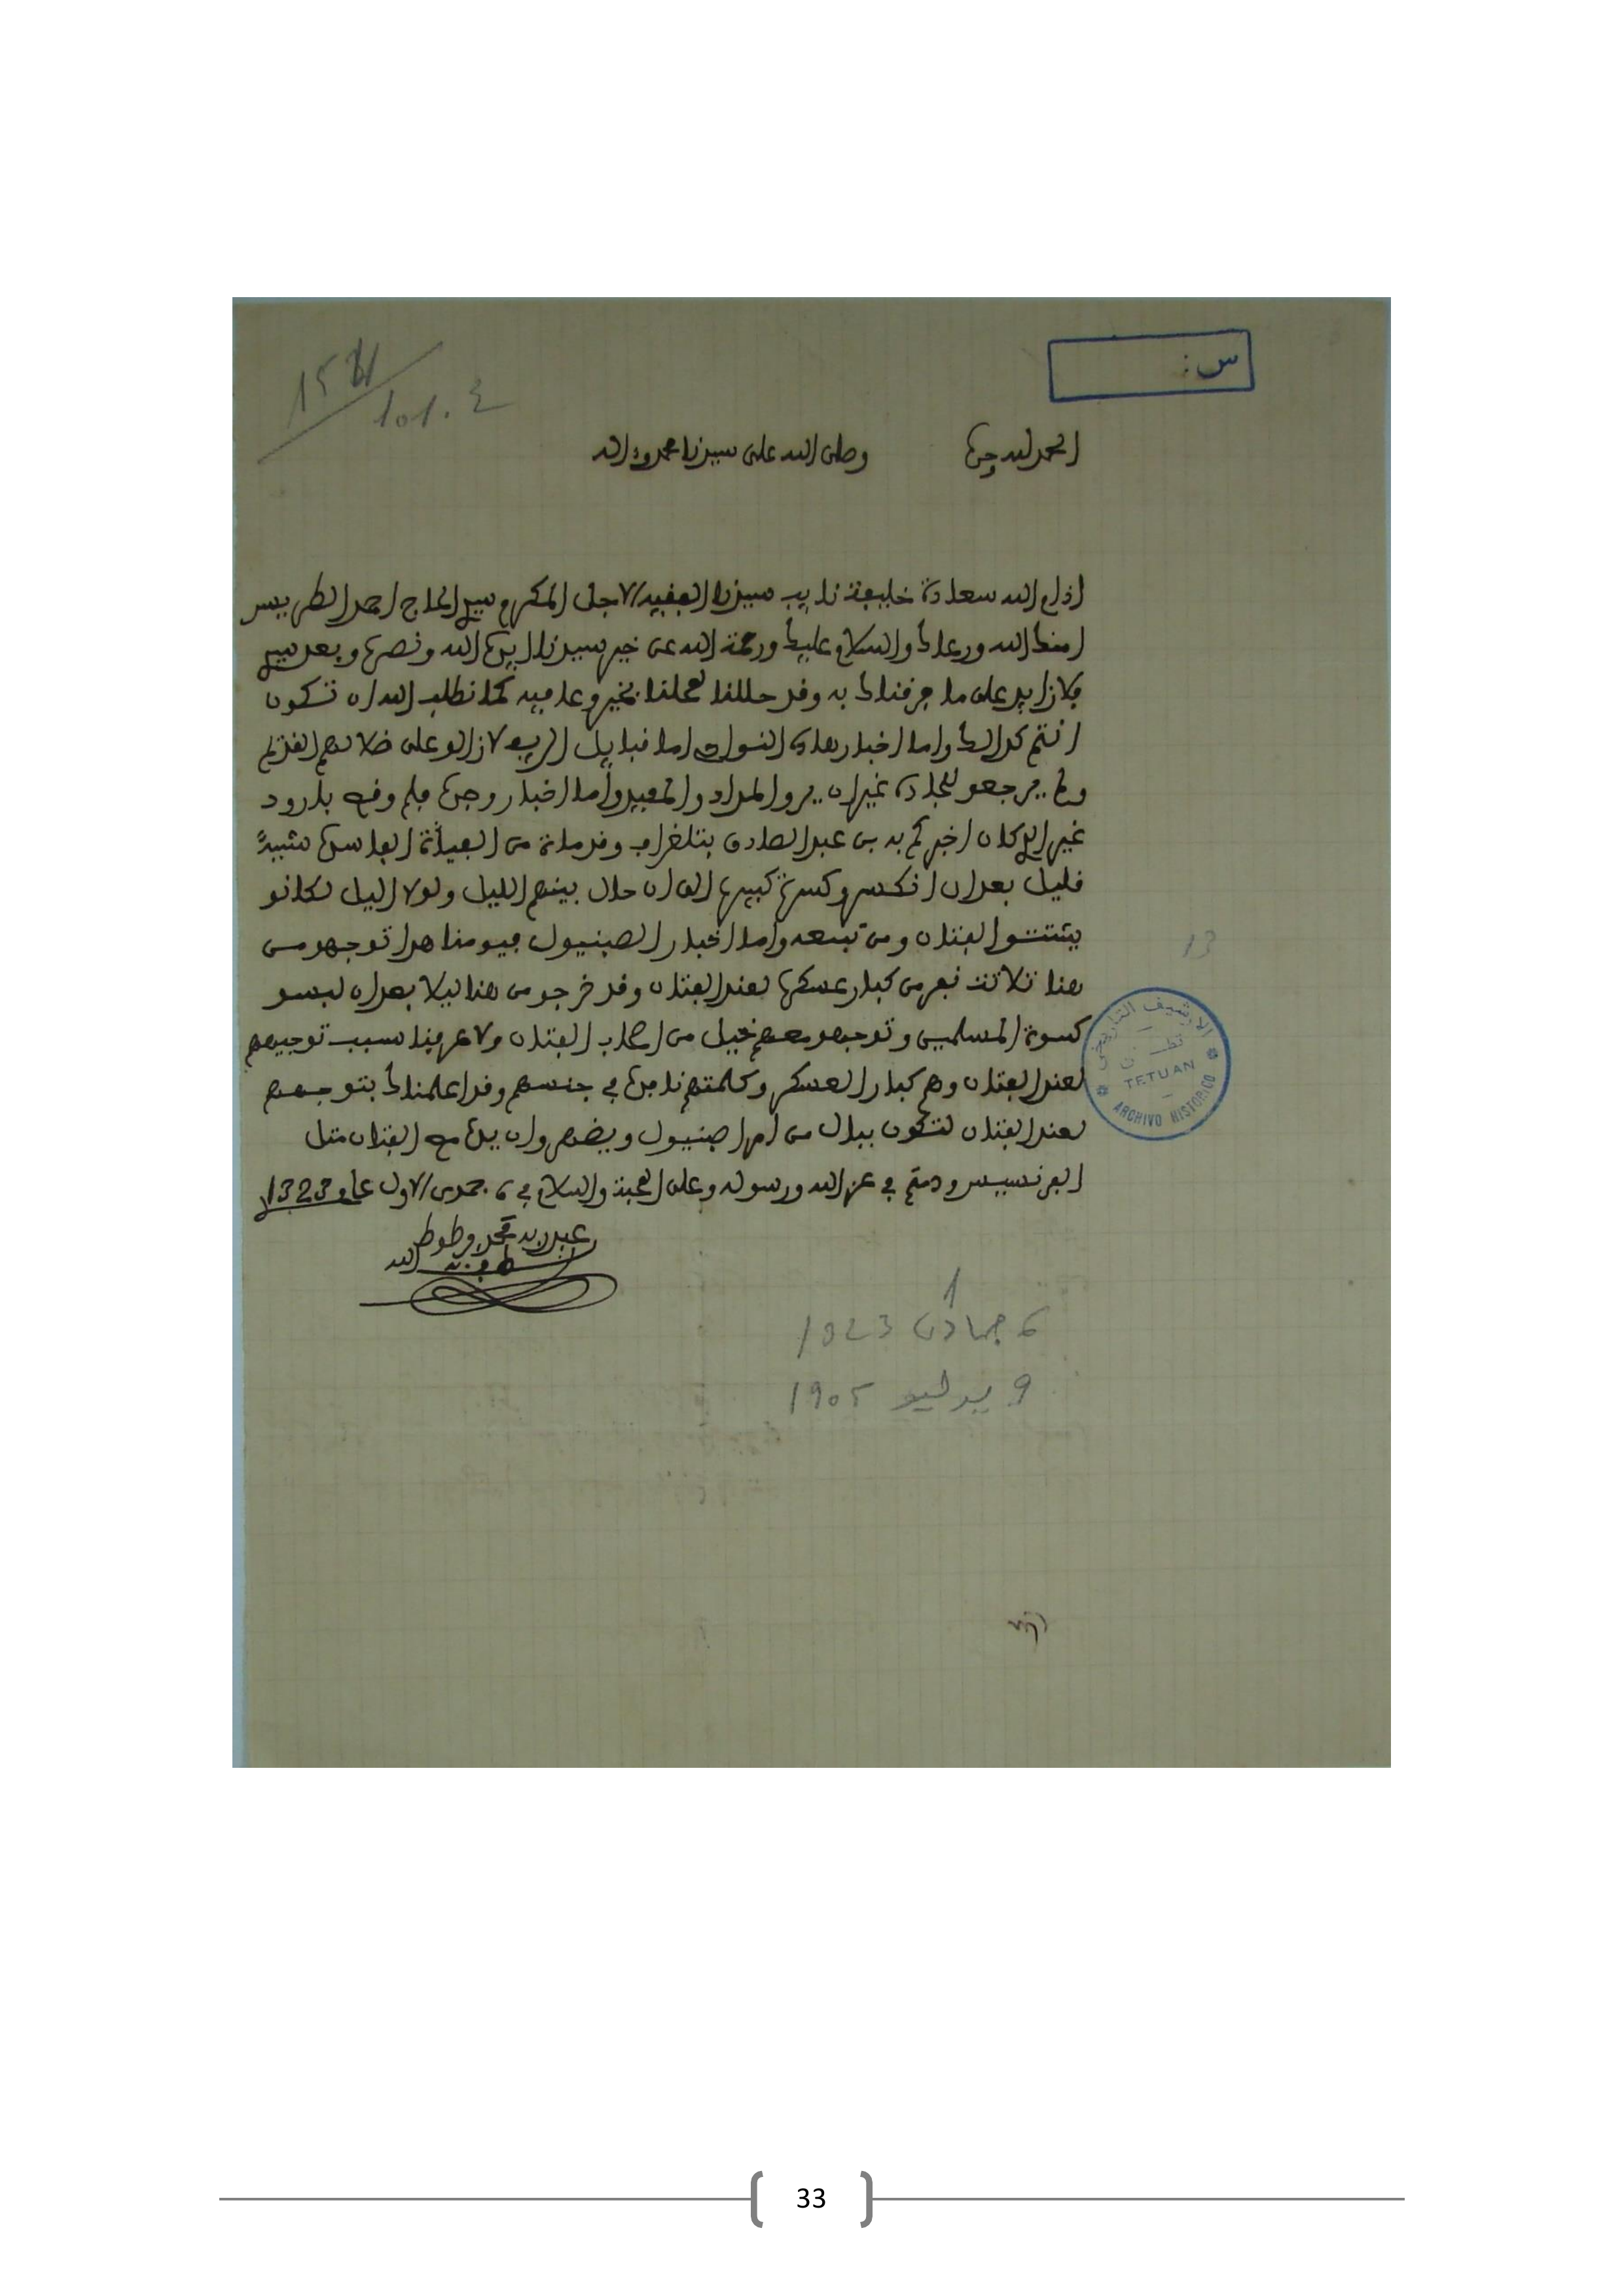 س:
15
101.4
الحمد لله وحده وصلى الله على سيدنا محمد وءاله
ادام الله سعادة خليفة نايب سيدنا الفقيه الاجل المكرم سيدي الحاج احمد الطريس
امنك الله ورعاك والسلام عليك ورحمة الله عن خير سيدنا ايده الله ونصره وبعد سيدي
فلازايد على ما عرفناك به وقد حللنا لمحلنا بخير وعافيه كما نطلب الله ان تكون
انتم كذالك واما اخبار هاذه النواحي اما قبايل الريف لازالو على ضلالهم القديم
ولم يرجعو للجادة غيران يرو المداد والمفيد واما اخبار وجدة فلم وقع بارود
غير الذي كان اخبركم به بن عبد الصادق بتلغراف وقد مات من الفياثة الفاسدة شيئا
قليل بعد ان انكسرو كسرة كبيرة الى ان حال بينهم الليل ولولا اليل لكانو
يشتتو الفتان ومن تبعه واما اخبار الصبنيول فيومنا هذا توجهو من
هنا ثلاثت نفر من كبار عسكره لعند الفتان وقد خرجو من هنا ليلا بعد ان لبسو
كسوة المسلمين وتوجهو معهم خيل من اصحاب الفتان ولا عرفنا سبب توجيههم
لعند الفتان وهم كبار العسكر وكلمتهم نافدة في جنسهم وقد اعلمناك بتوجههم
لعند الفتان لتكون ببال من امر اصبنيول ويضهر وان يده مع الفتان مثل
الفرنسيس ودمتم في عز الله ورسوله وعلى المحبة والسلام في 6 جمدى الاول عام 1323
عبد ربه محمد وطوط
لطف به الله
6 جمادى 1 1323
9 يوليو 1905
13
الارشيف التاريخي
تطــــوان
TETUAN
ARCHIVO HISTORICO
33